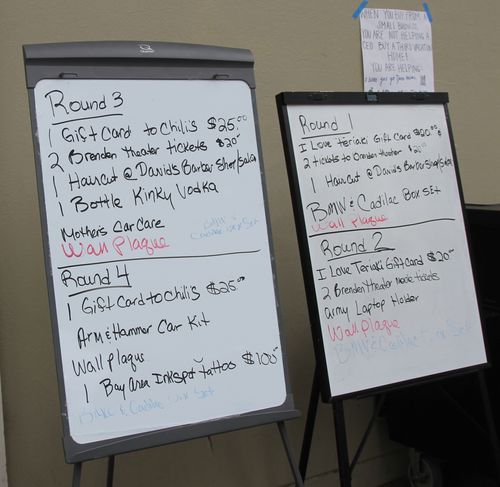 WHEN YOU BUY FROM A
SMALL BUSINESS
YOU ARE NOT HELPING A
CEO BUY A THIRD VACATION
HOME!
YOU ARE HELPING!
Round 3
1 Gift Card to Chili's $25.00
2 Brenden theater tickets $20
1 Haircut @ David's Barber Shop/Salon
1 Bottle Kinky Vodka
Mothers Car Care
Wall Plaque
BMW &
Cadilac Box Set
Round 4
1 Gift Card to Chili's $25.00
Arm & Hammer Car Kit
Wall plaque
1 Bay Area Inkspot Tattoo $100
BMW & Cadilac Box Set
Round 1
I Love Teriaki Gift Card $20.00 &
2 tickets to Brenden theater
1 Haircut @ David's Barber Shop/Salon
BMW & Cadilac Box Set
Wall Plaque
Round 2
I Love Teriaki Gift Card $20.00
2 Brenden theater movie tickets
Army Laptop Holder
Wall Plaque
BMW & Cadilac Box Set